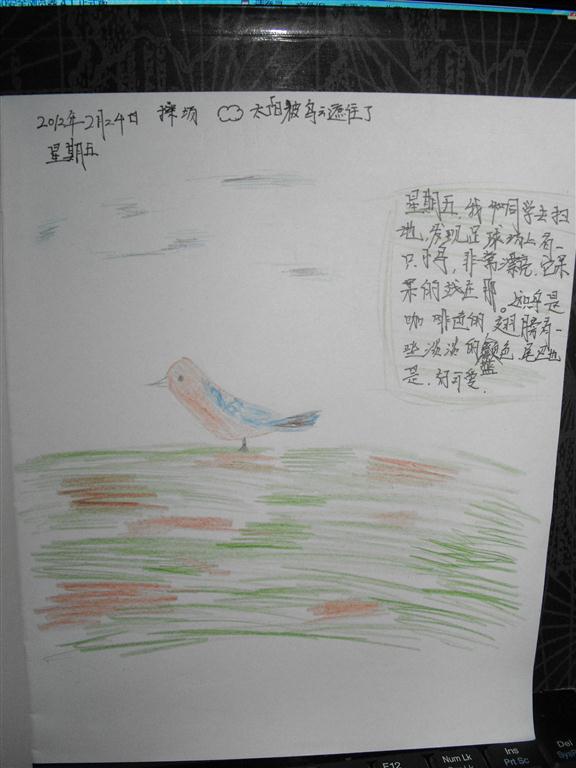 2012年2月24日 操场 太阳被乌云遮住了
星期五
星期五,我和同学去扫
地,发现足球场上有一
只小鸟,非常漂亮,它呆
呆的站在那。这只鸟是
咖啡色的,翅膀有一
些淡淡的蓝色,尾巴也
是,好可爱。
F12
Num Lk
Scr Lk
Ins
Prt Sc
Del
SysR